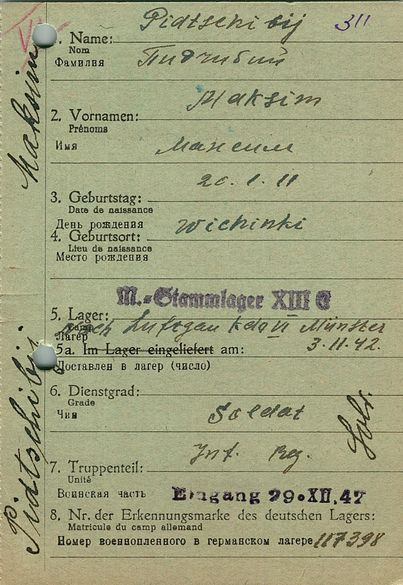 311
Pidtschibij
1. Name:
Nom
Фамилия
Пидчибий
Maksim
2. Vornamen:
Prénoms
Имя
Максим
20.1.11
3. Geburtstag:
Date de naissance
День рождения
Wichinki
4. Geburtsort:
Lieu de naissance
Место рождения
M.-Stammlager XIII C
5. Lager:
Camp
Лагерь
nach Luftgau Kdo VI Münster
5a. Im Lager eingeliefert am:
3.11.42.
Доставлен в лагерь (число)
6. Dienstgrad:
Grade
Чин
Soldat
Inf. Reg.
7. Truppenteil:
Unité
Воинская часть
Eingang 29.XII.42
8. Nr. der Erkennungsmarke des deutschen Lagers:
Matricule du camp allemand
Номер военнопленного в германском лагере
117398
Pidtschibij Maksim